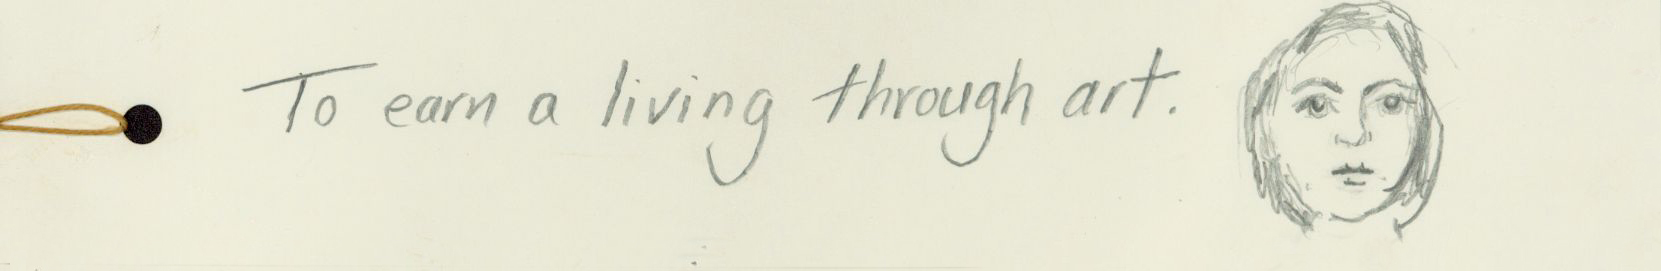 To earn a living through art.